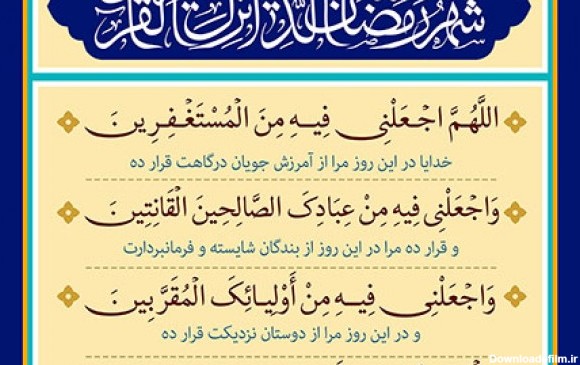 شهر رمضان الذی انزل فیه القرآن
اللَّهُمَّ اجْعَلْنِی فِیهِ مِنَ الْمُسْتَغْفِرِینَ
خدایا در این روز مرا از آمرزش جویان درگاهت قرار ده
وَاجْعَلْنِی فِیهِ مِنْ عِبَادِکَ الصَّالِحِینَ الْقَانِتِینَ
و قرار ده مرا در این روز از بندگان شایسته و فرمانبردارت
وَاجْعَلْنِی فِیهِ مِنْ أَوْلِیائِکَ الْمُقَرَّبِینَ
و در این روز مرا از دوستان نزدیکت قرار ده